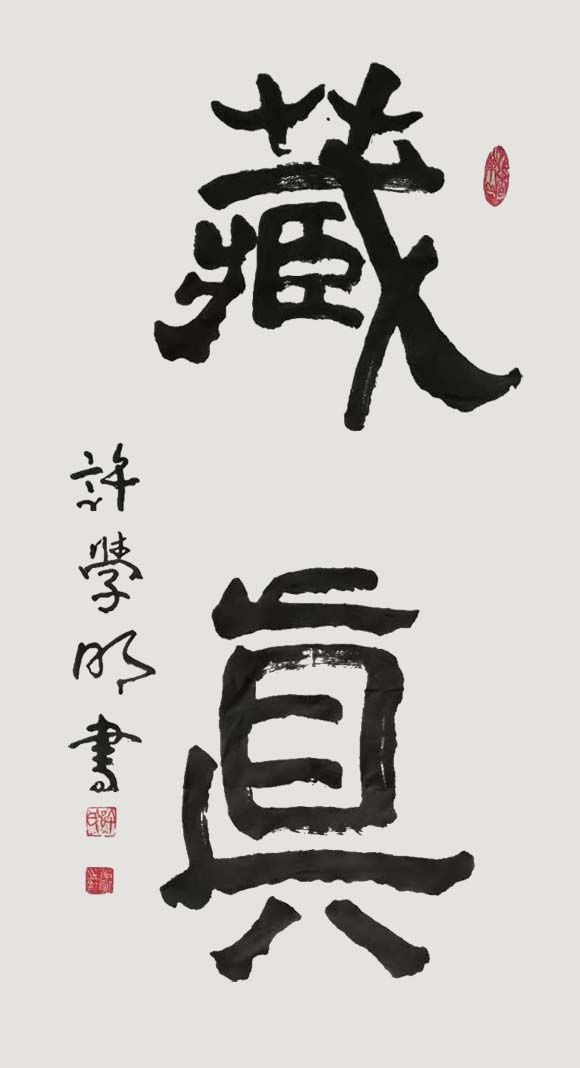 藏眞
許學明書